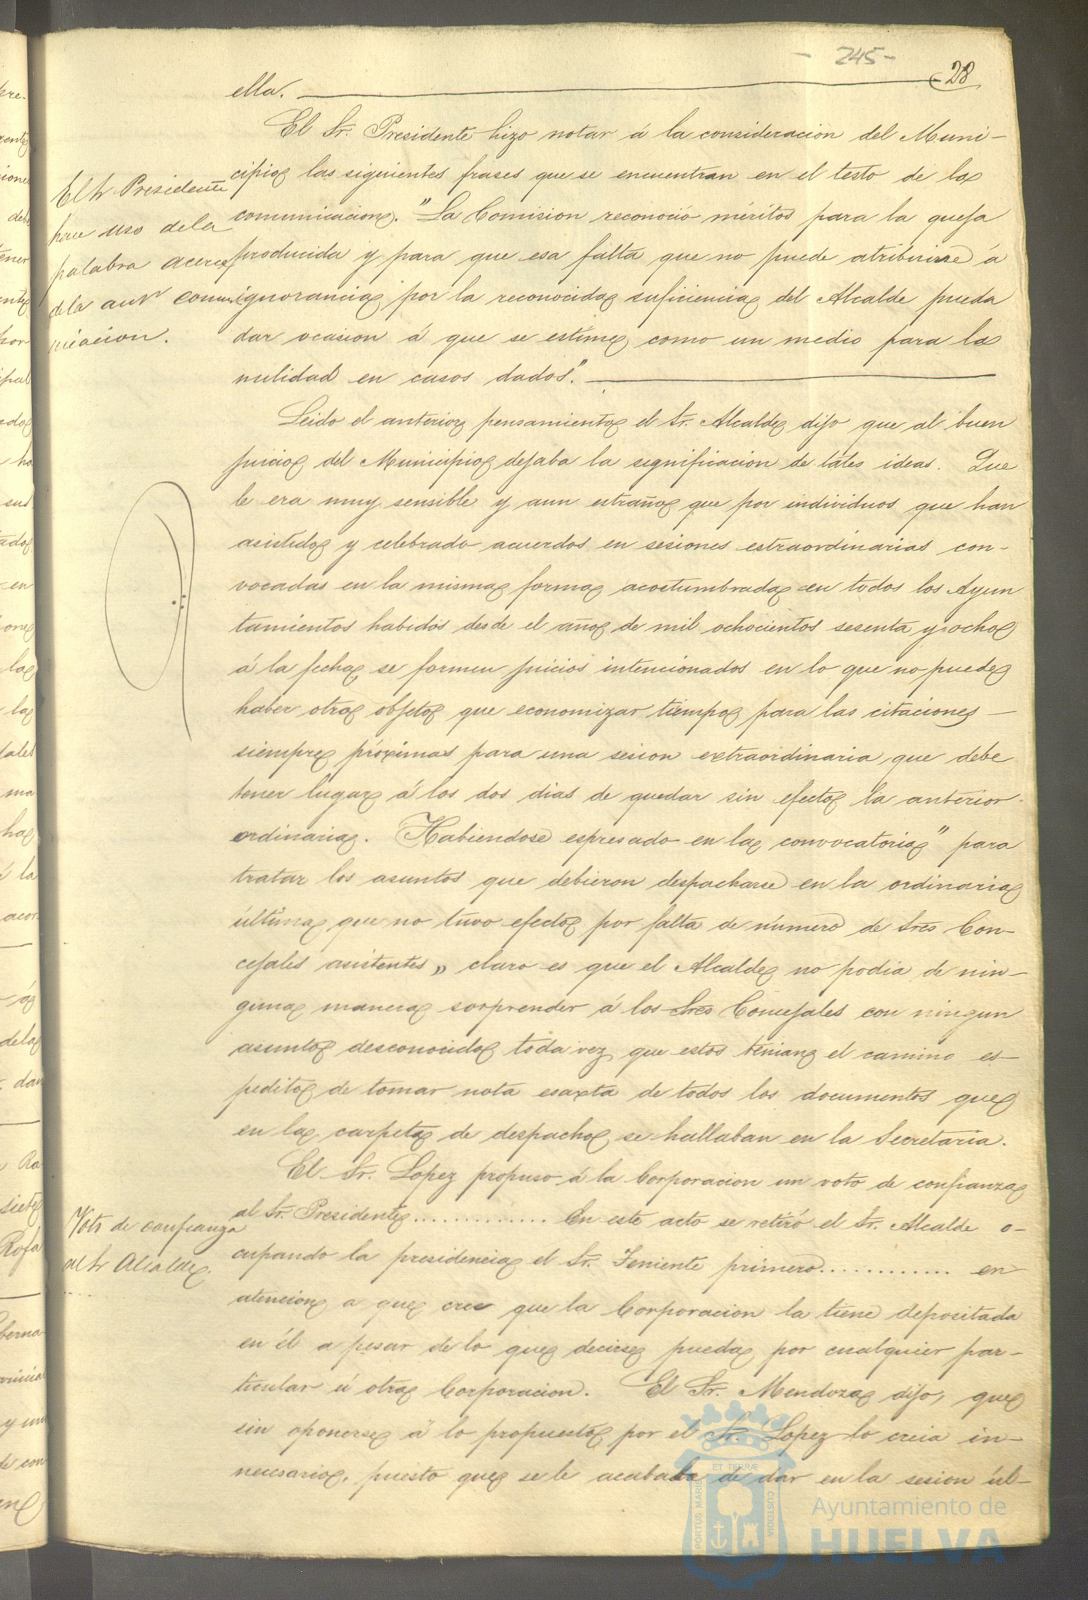 - 245 -
28
ella.
El Sr. Presidente hizo notar á la consideracion del Muni-
cipio las siguientes frases que se encuentran en el testo de la
comunicacion. "La Comision reconoció méritos para la queja
producida y para que esa falta que no puede atribuirse á
ignorancia por la reconocida suficiencia del Alcalde pueda
dar ocasion á que se estime como un medio para la
nulidad en casos dados".
El Sr Presidente
hace uso de la
palabra acerca
de la antr comu-
nicacion.
Leido el anterior pensamiento el Sr. Alcalde dijo que al buen
juicio del Municipio dejaba la significacion de tales ideas. Que
le era muy sensible y aun estraño que por individuos que han
asistido y celebrado acuerdos en sesiones estraordinarias con-
vocadas en la misma forma acostumbrada en todos los Ayun
tamientos habidos desde el año de mil ochocientos sesenta y ocho
á la fecha se formen juicios intencionados en lo que no puede
haber otro objeto que economizar tiempo para las citaciones
siempre próximas para una sesion extraordinaria que debe
tener lugar á los dos dias de quedar sin efecto la anterior
ordinaria. Habiendose espresado en la convocatoria "para
tratar los asuntos que debieron despacharse en la ordinaria
última que no tuvo efecto por falta de número de Sres Con-
cejales asistentes" claro es que el Alcalde no podia de nin-
guna manera sorprender á los Sres Concejales con ningun
asunto desconocido toda vez que estos tenian el camino es-
pedito de tomar nota esaxta de todos los documentos que
en la carpeta de despacho se hallaban en la Secretaría.
El Sr. Lopez propuso á la Corporacion un voto de confianza
al Sr. Presidente............. En este acto se retiró el Sr. Alcalde o-
cupando la presidencia el Sr. Teniente primero............ en
atencion a que cree que la Corporacion la tiene depositada
en él a pesar de lo que decirse pueda por cualquier par-
ticular ú otra Corporacion. El Sr. Mendoza dijo, que
sin oponerse á lo propuesto por el Sr. Lopez lo creia in-
necesario, puesto que se le acababa de dar en la sesion úl-
Voto de confianza
al Sr Alcalde.
PORTUS MARIS ET TERRÆ CUSTODIA
Ayuntamiento de
HUELVA